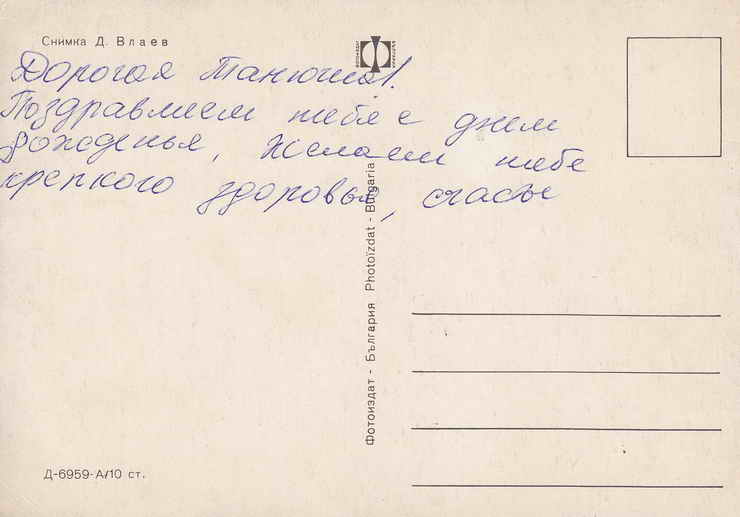 Снимка Д. Влаев
Дорогая Танюша!
Поздравляем тебя с днем
рожденья, желаем тебе
крепкого здоровья, счастье
Фотоиздат - България Photoizdat - Bulgaria
Д-6959-А/10 ст.